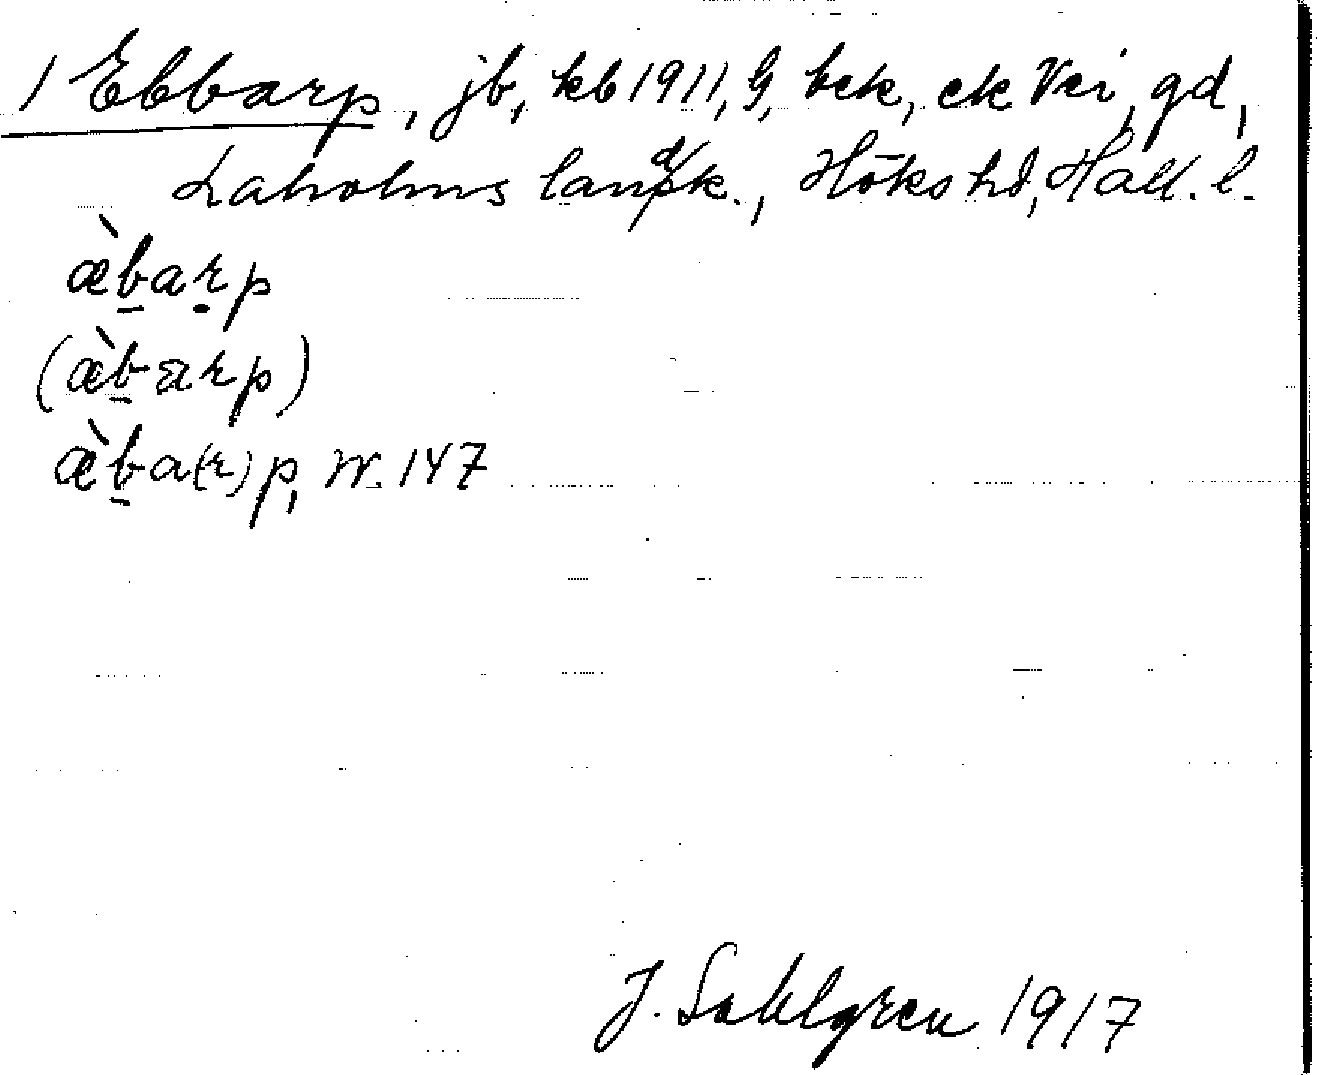 1 Ebbarp, jb, kb 1911, G, kek, ek Vei, gd,
Laholms landsk., Höks hd, Hall. l.
æ̀barp
(æ̀barp)
æ̀ba(r)p, W. 147
J. Sahlgren 1917